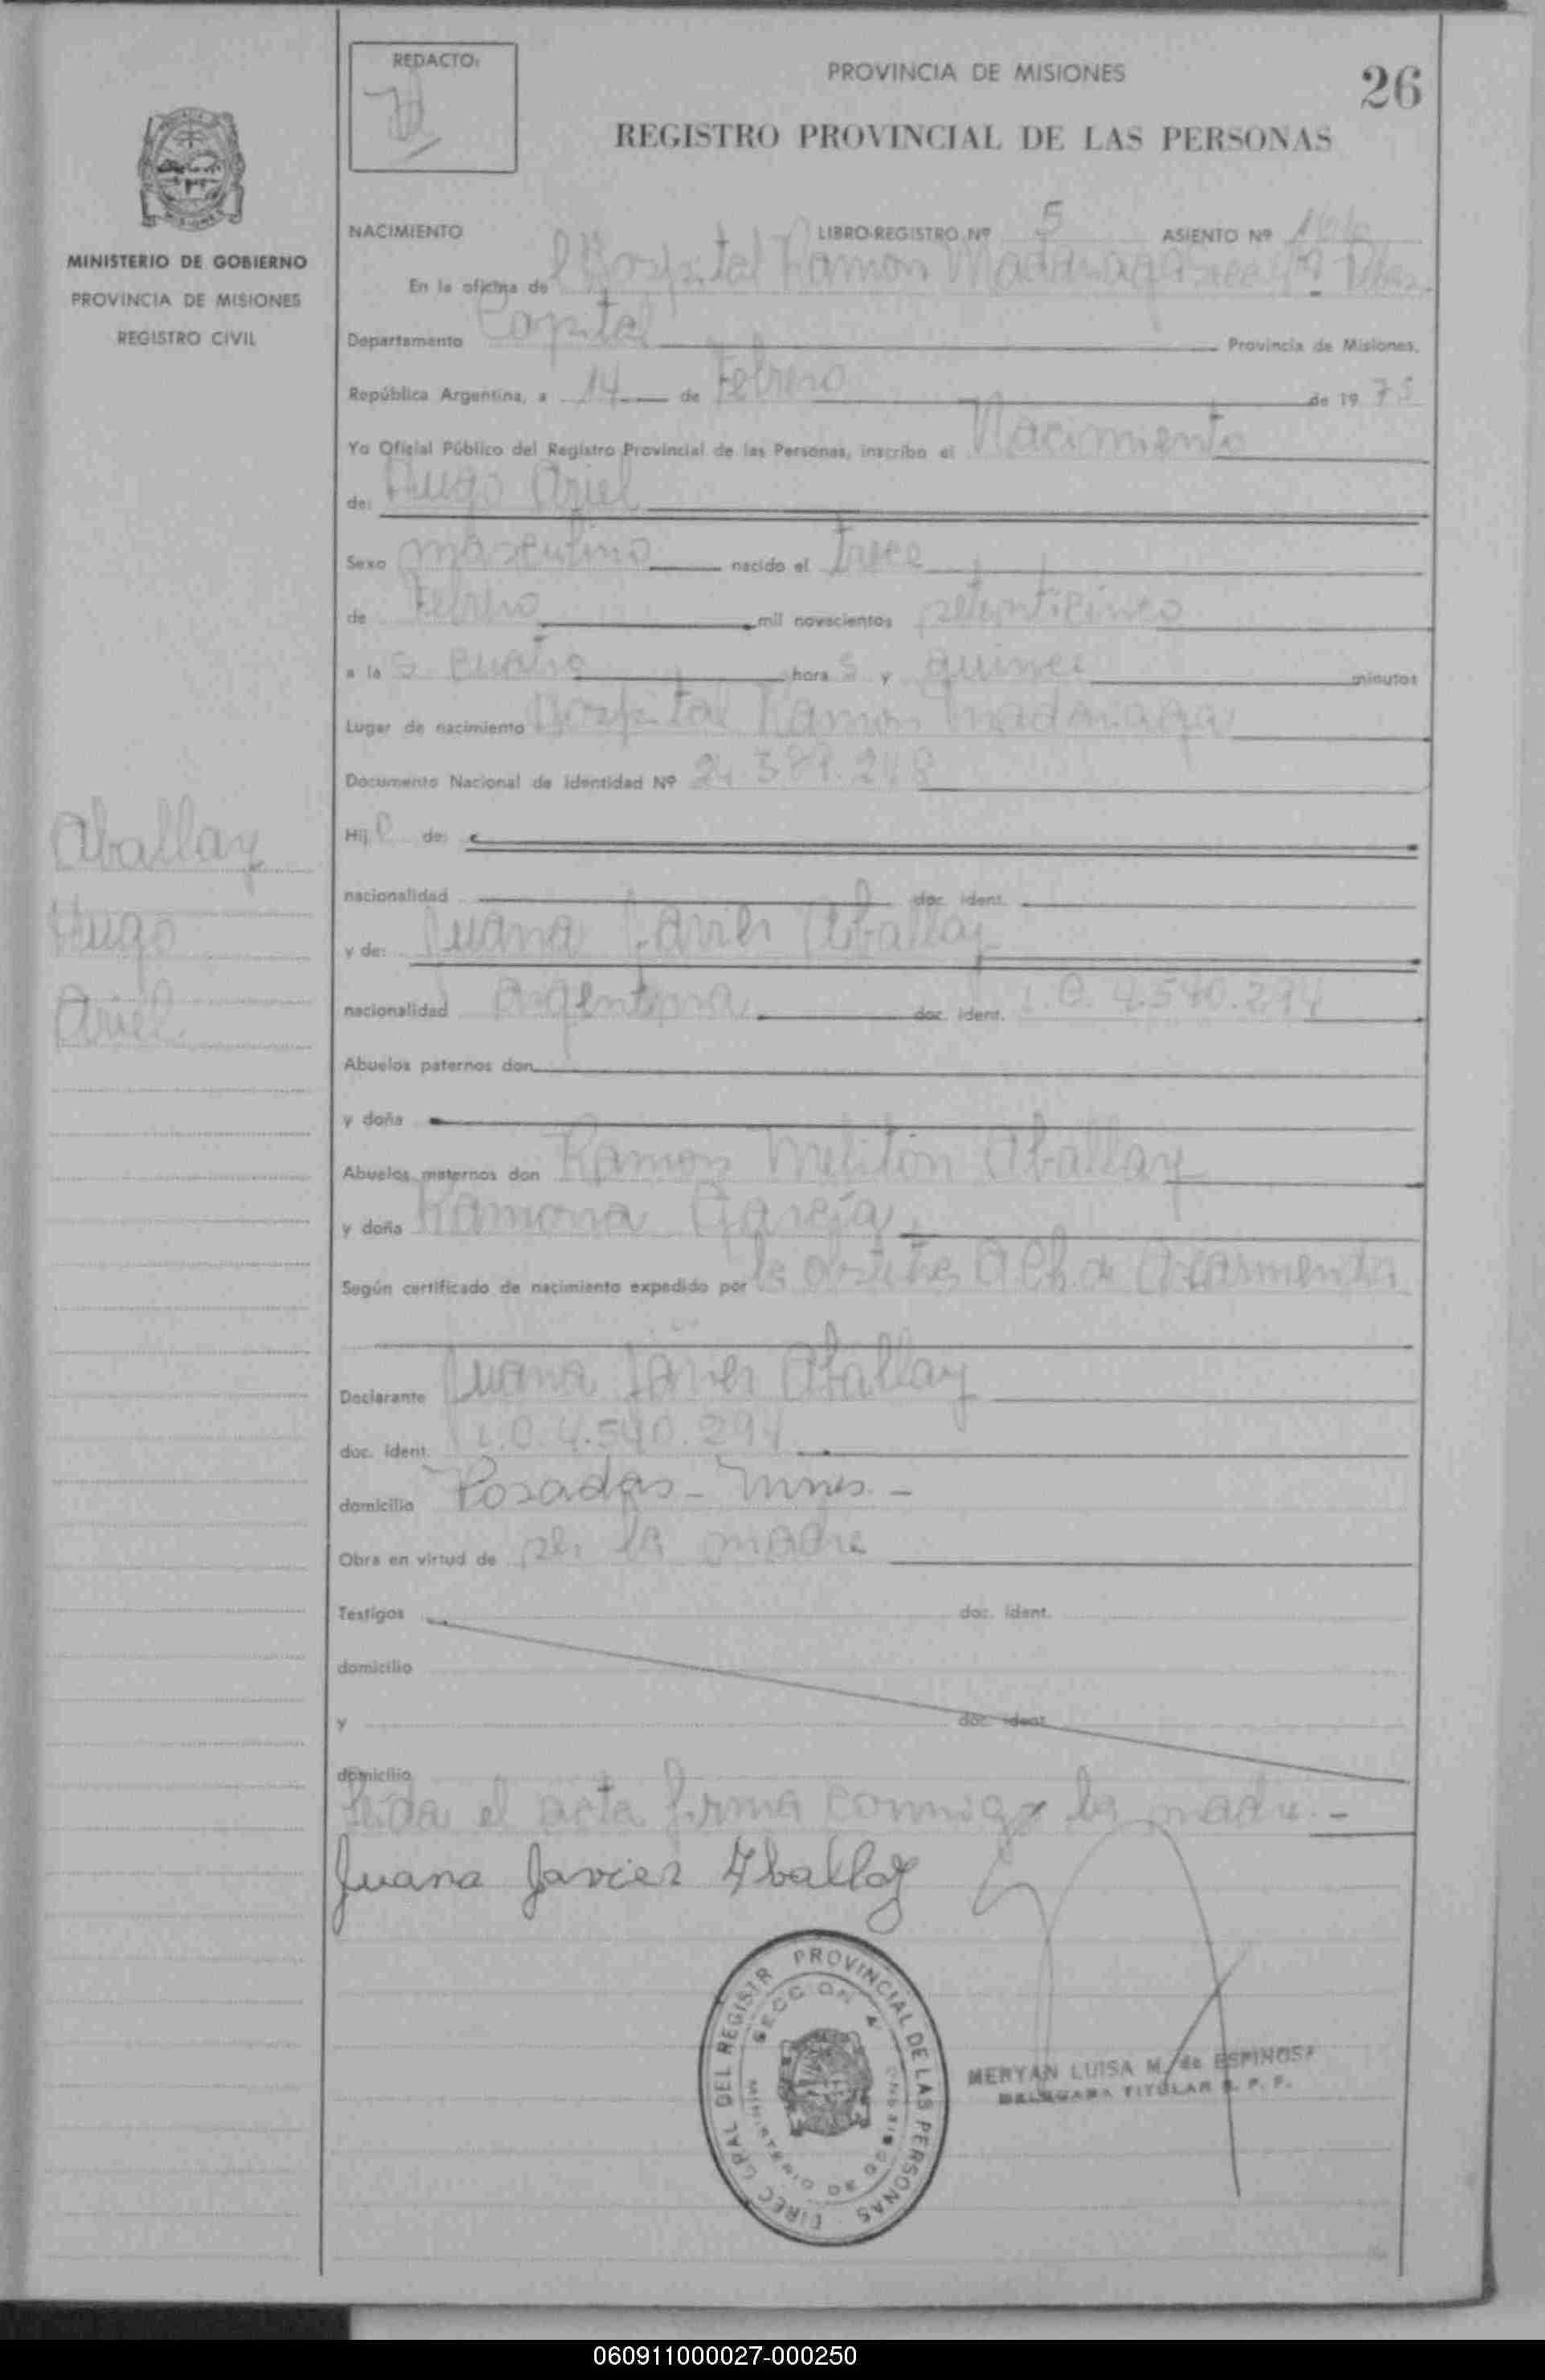 REDACTO:
PROVINCIA DE MISIONES
26
REGISTRO PROVINCIAL DE LAS PERSONAS
MINISTERIO DE GOBIERNO
PROVINCIA DE MISIONES
REGISTRO CIVIL
NACIMIENTO LIBRO-REGISTRO Nº 5 ASIENTO Nº
En la oficina de Hospital Ramon Madariaga
Departamento Capital Provincia de Misiones,
República Argentina, a 14 de Febrero de 19 75
Yo Oficial Público del Registro Provincial de las Personas, inscribo el Nacimiento
de: Hugo Ariel
Sexo masculino nacido el trece
de Febrero mil novecientos setenticinco
a la s cuatro hora s y quince minutos
Lugar de nacimiento Hospital Ramon Madariaga
Documento Nacional de Identidad Nº
Hij o de:
nacionalidad doc. ident.
y de: Juana Javier Aballay
nacionalidad argentina doc. ident. L.C. 4.540.294
Abuelos paternos don
y doña
Abuelos maternos don Ramon Meliton Aballay
y doña Ramona Garcia
Según certificado de nacimiento expedido por la
Declarante Juana Javier Aballay
doc. ident. L.C. 4.540.294
domicilio Posadas - Mnes. -
Obra en virtud de ser la madre
Testigos doc. ident.
domicilio
y doc. ident.
domicilio
Leida el acta firma conmigo la madre. -
Juana Javier Aballay
Aballay
Hugo
Ariel
PROVINCIAL DE LAS PERSONAS
GRAL DEL REGISTR
MERYAN LUISA M. de ESPINOSA
TITULAR R. P. P.
060911000027-000250